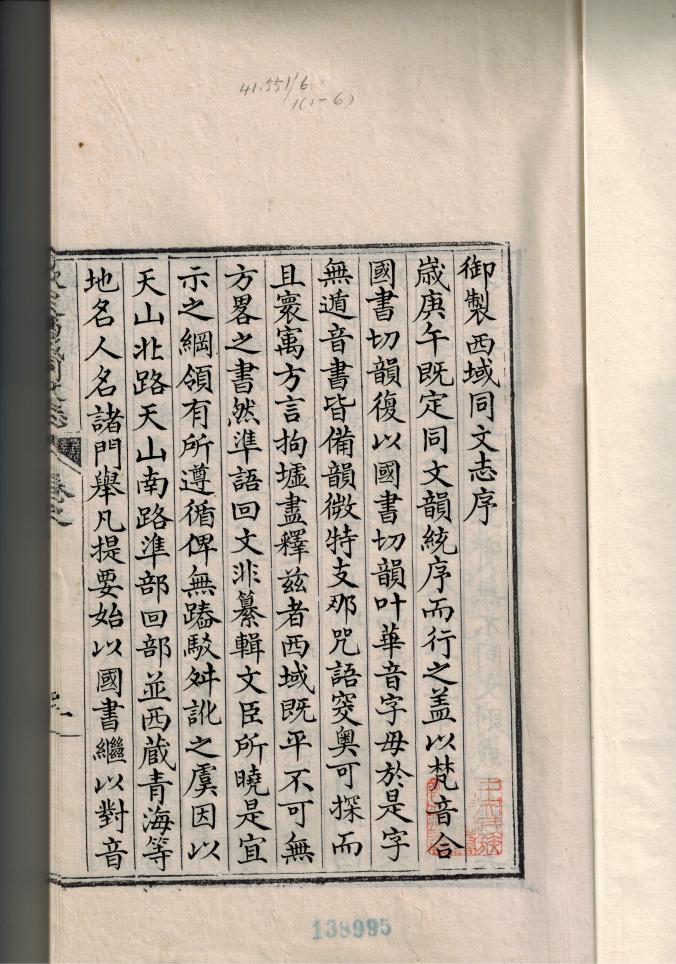 41.551/6
/1(1-6)
御製西域同文志序
歲庚午既定同文韻統序而行之盖以梵音合
國書切韻復以國書切韻叶華音字母於是字
無遁音書皆備韻微特支那咒語窔奥可探而
且寰寓方言拘墟盡釋兹者西域既平不可無
方畧之書然準語回文非纂輯文臣所曉是宜
示之綱領有所遵循俾無踳駁舛訛之虞因以
天山北路天山南路準部回部並西藏青海等
地名人名諸門舉凡提要始以國書繼以對音
138995